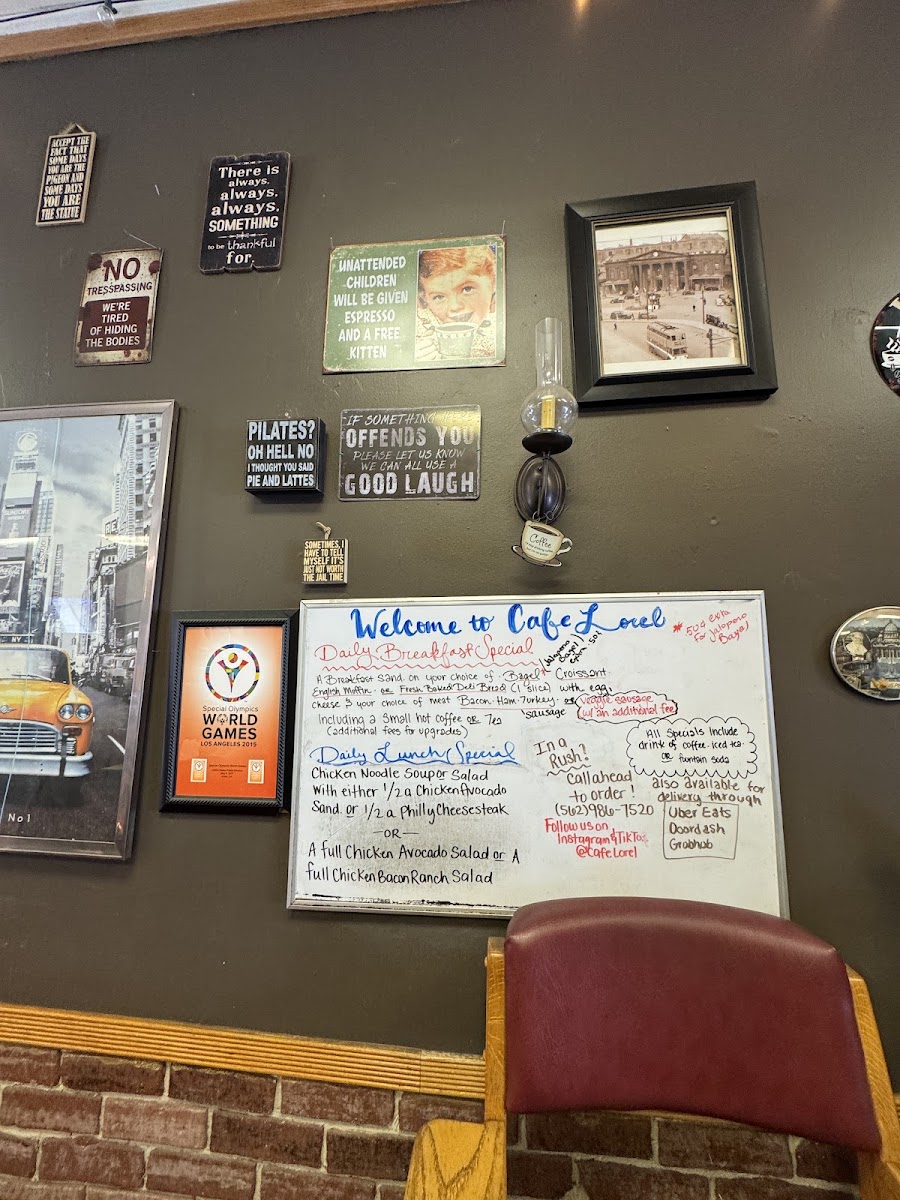 ACCEPT THE
FACT THAT
SOME DAYS
YOU ARE THE
PIGEON AND
SOME DAYS
YOU ARE
THE STATUE
There is
always,
always,
always,
SOMETHING
to be thankful
for.
NO
TRESSPASSING
WE'RE
TIRED
OF HIDING
THE BODIES
UNATTENDED
CHILDREN
WILL BE GIVEN
ESPRESSO
AND A FREE
KITTEN
PILATES?
OH HELL NO
I THOUGHT YOU SAID
PIE AND LATTES
IF SOMETHING HERE
OFFENDS YOU
PLEASE LET US KNOW
WE CAN ALL USE A
GOOD LAUGH
Coffee
SOMETIMES, I
HAVE TO TELL
MYSELF IT'S
JUST NOT WORTH
THE JAIL TIME
No 1
Special Olympics
WORLD
GAMES
LOS ANGELES 2015
Welcome to Cafe Lorel
* 50¢ extra
for Jalapeno
Bagel
Daily Breakfast Special
Jalapeno
Bagel
extra .50¢
A Breakfast Sand. on your choice of. Bagel, Croissant
English Muffin. or Fresh Baked Deli Bread (1 slice) with egg,
cheese & your choice of meat Bacon. Ham. Turkey. or veggie sausage
sausage (w/ an additional fee)
Including a small hot coffee or Tea
(additional fees for upgrades)
Daily Lunch Special
Chicken Noodle Soup or Salad
with either 1/2 a Chicken Avocado
Sand. or 1/2 a Philly Cheesesteak
—OR—
A full Chicken Avocado Salad or A
full Chicken Bacon Ranch Salad
In a
Rush?
call ahead
to order!
(562)986-7520
Follow us on
Instagram & TikTok
@CafeLorel
All Specials Include
drink of coffee. iced tea.
or fountain soda
also available for
delivery through
Uber Eats
Doordash
Grabhub